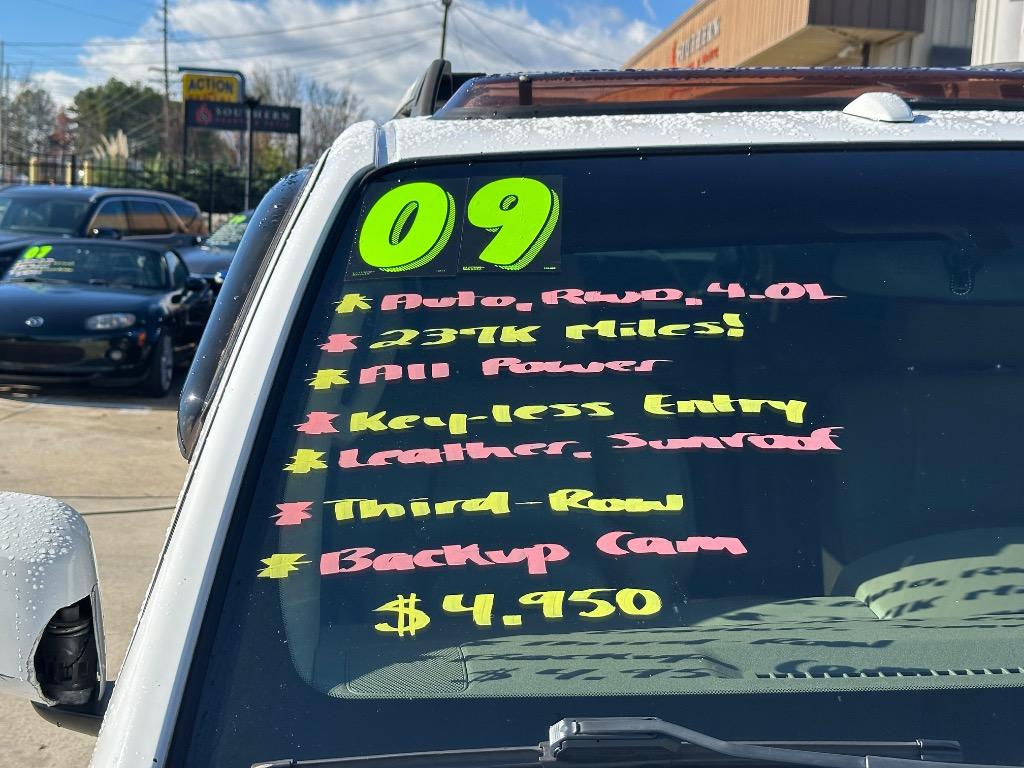 ACTION
SOUTHERN
09
* Auto, RWD, 4.0L
* 237K Miles!
* All Power
* Key-less Entry
* Leather, Sunroof
* Third-Row
* Backup Cam
$4,950